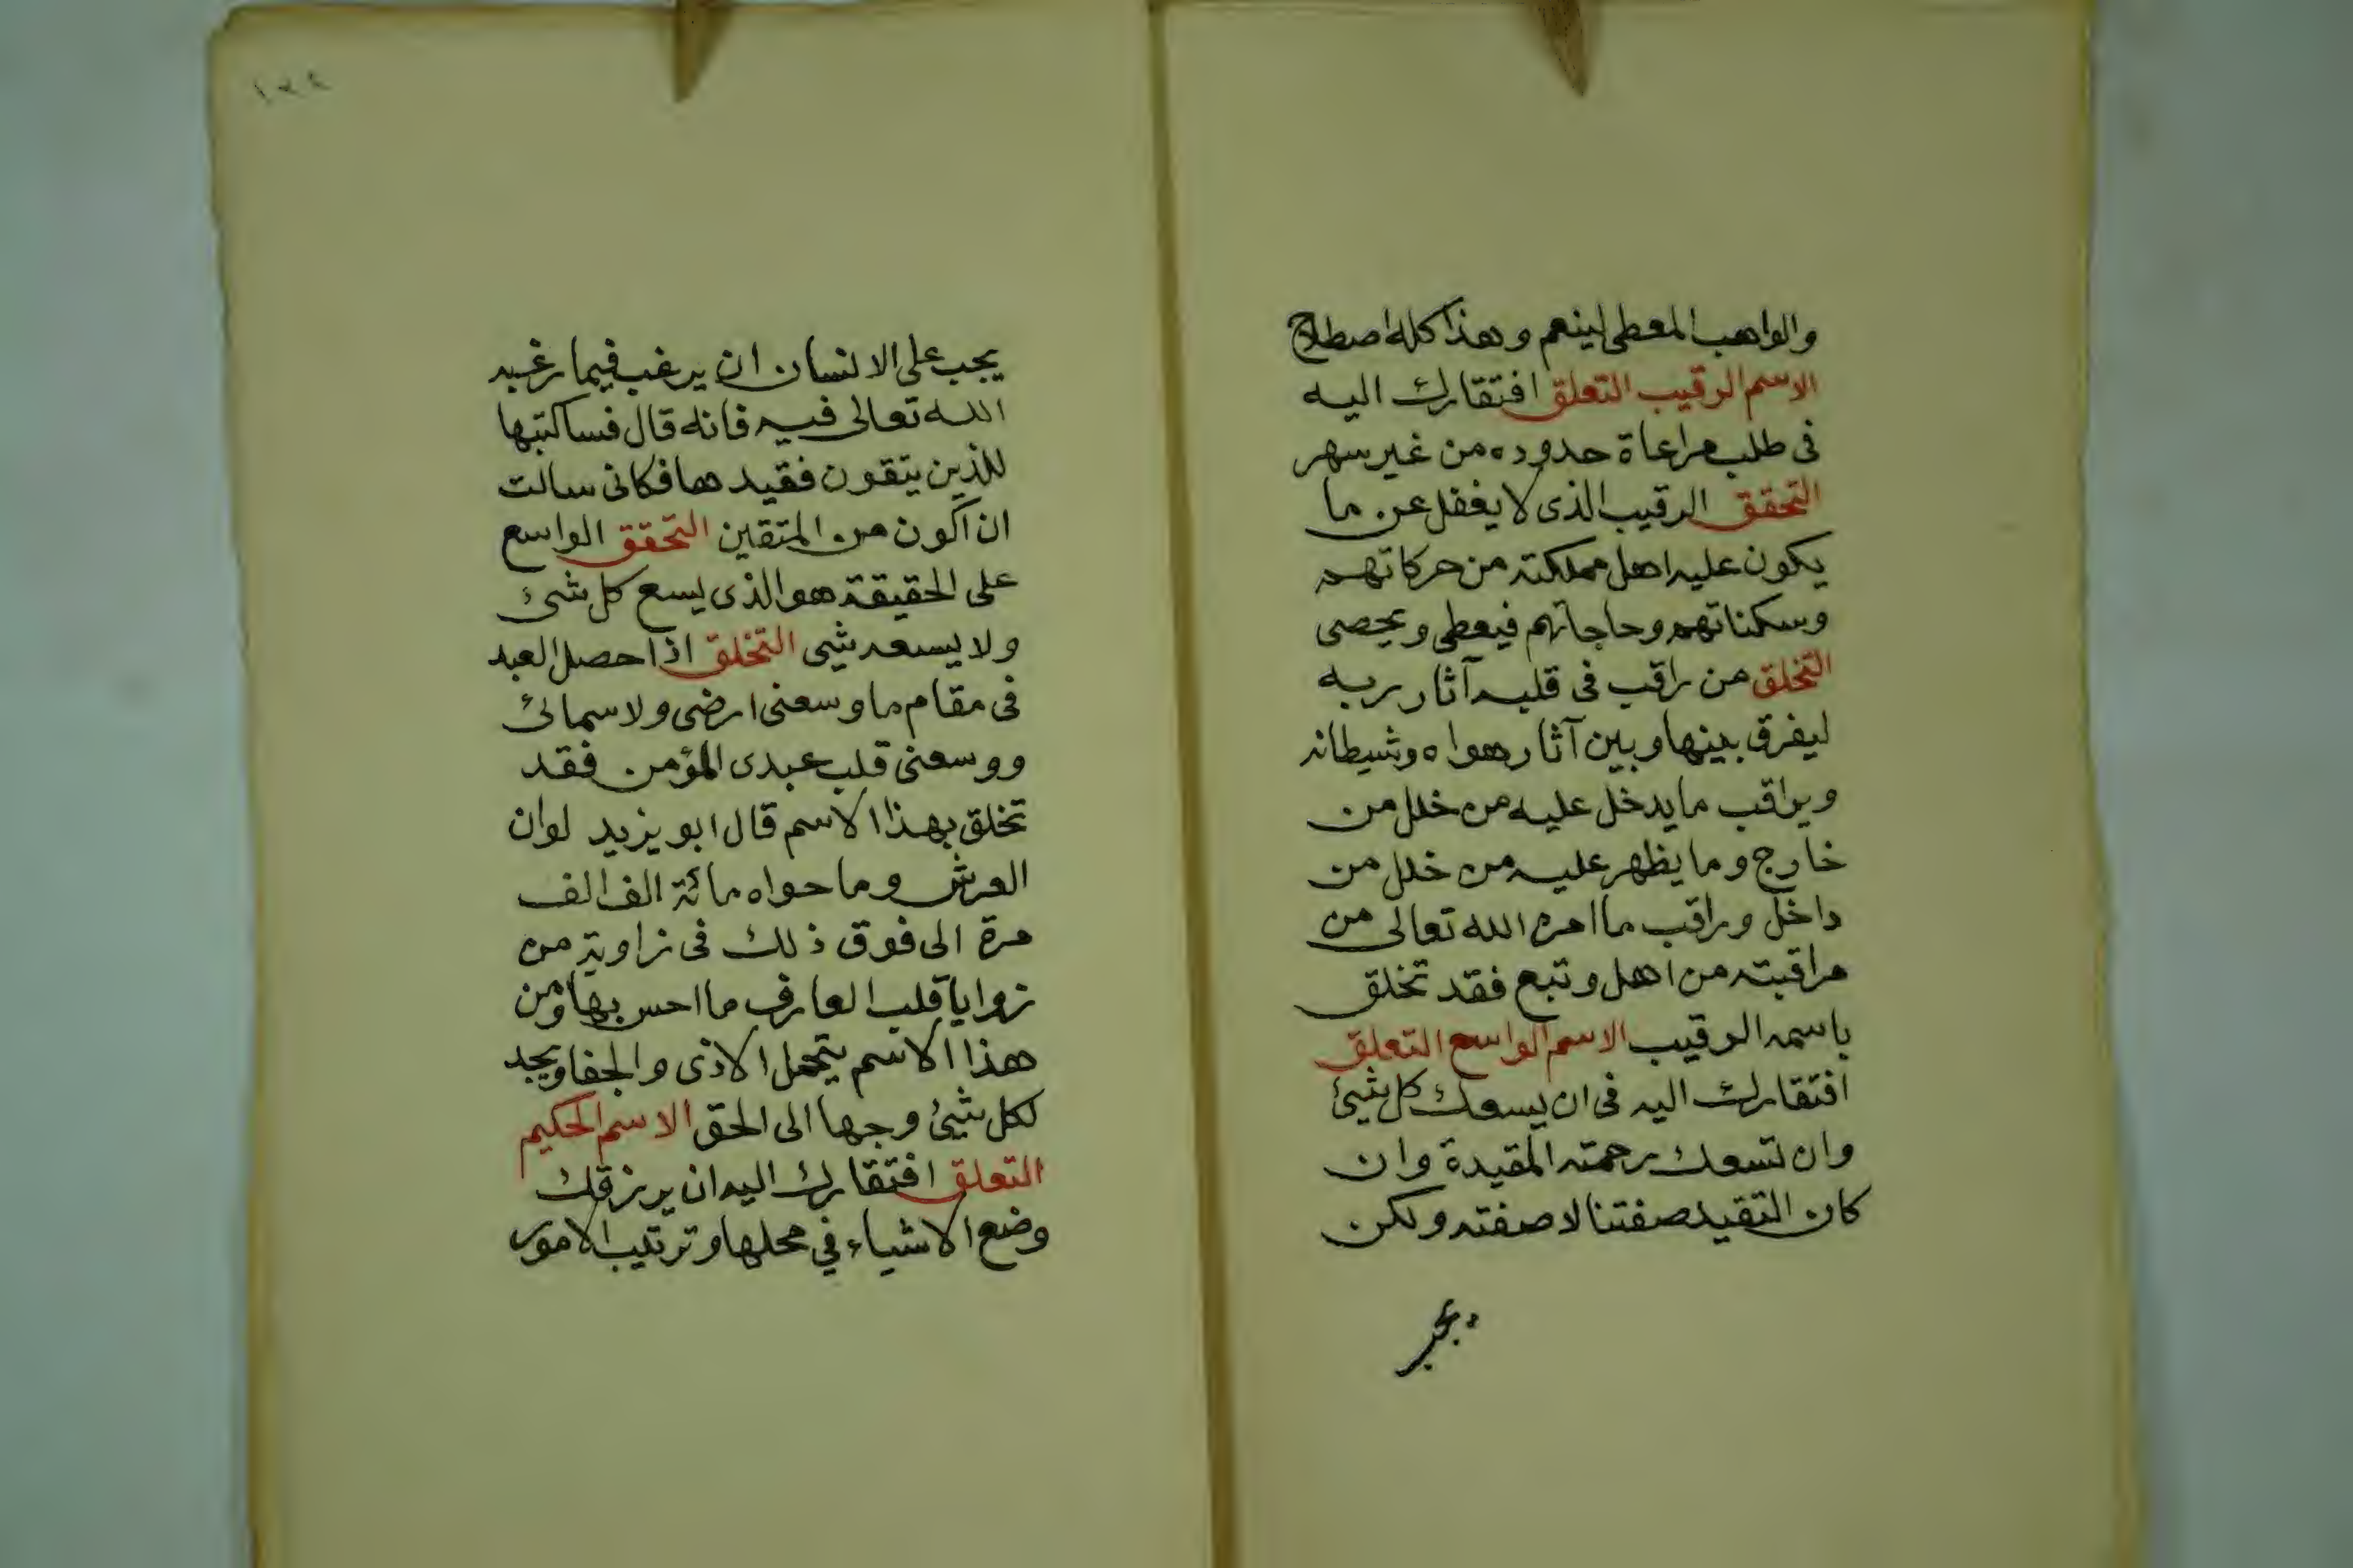 والواهب المعطى لينعم وهذا كله اصطلاح
الاسم الرقيب التعلق افتقارك اليه
فى طلب مراعاة حدوده من غير سهر
التحقق الرقيب الذى لا يغفل عن ما
يكون عليه اهل مملكته من حركاتهم
وسكناتهم وحاجاتهم فيعطى ويحصى
التخلق من راقب فى قلبه آثار ربه
ليفرق بينها وبين آثار هواه وشيطانه
ويراقب ما يدخل عليه من خلل من
خارج وما يظهر عليه من خلل من
داخل وراقب ما امره الله تعالى من
مراقبته من اهل وتبع فقد تخلق
باسمه الرقيب الاسم الواسع التعلق
افتقارك اليه فى ان يسعك كل شيئ
وان تسعك رحمته المقيدة وان
كان التقيد صفتنا لا صفته ولكن
يجب
١٢٤
يجب على الانسان ان يرغب فيما رغبه
الله تعالى فيه فانه قال فساكتبها
للذين يتقون فقيدها فكانى سالت
ان اكون من المتقين التحقق الواسع
على الحقيقة هو الذى يسع كل شئ
ولا يسعه شيى التخلق اذا حصل العبد
فى مقام ما وسعنى ارضى ولا سمائى
ووسعنى قلب عبدى المؤمن فقد
تخلق بهذا الاسم قال ابو يزيد لو ان
العرش وما حواه مائة الف الف
مرة الى فوق ذلك فى زاوية من
زوايا قلب العارف ما احس بها ومن
هذا الاسم يتحمل الاذى والجفا ويجد
لكل شيئ وجها الى الحق الاسم الحكيم
التعلق افتقارك اليه ان يرزقك
وضع الاشياء في محلها وترتيب الامور